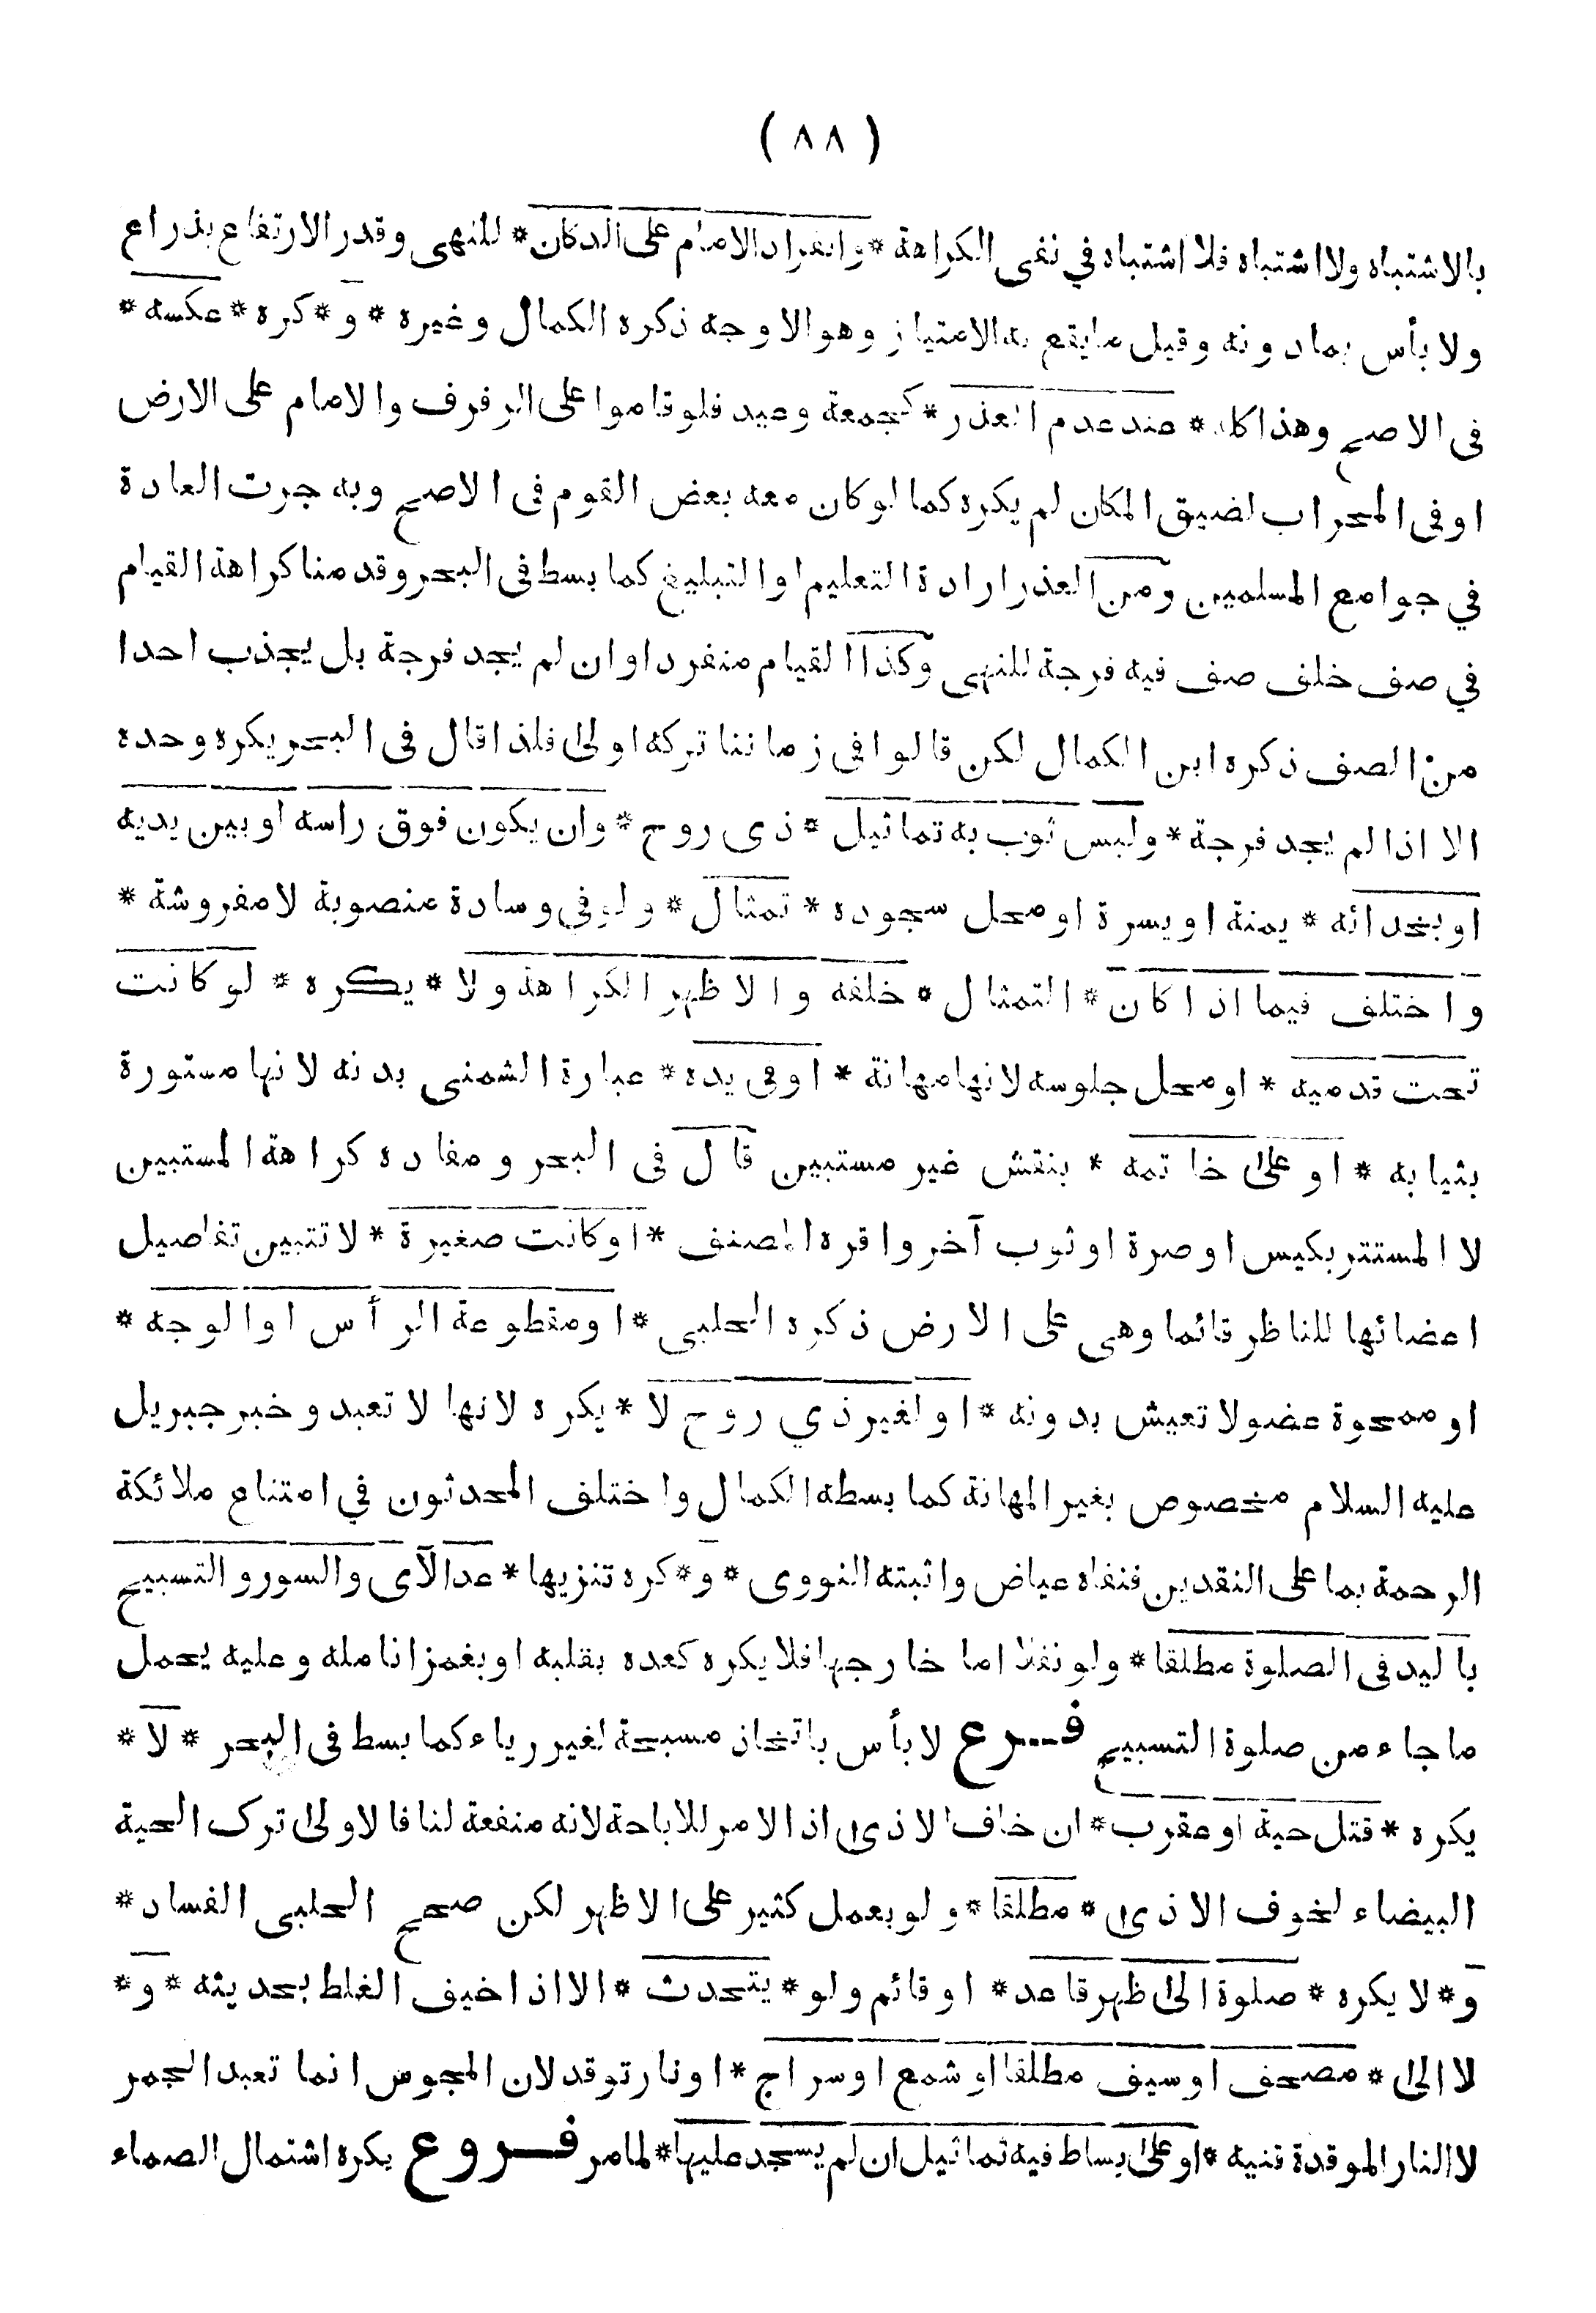 ( ٨٨ )
بالاشتباه ولااشتباه فلا اشتباه في نفى الكراهة * وانفراد الامام على الدكان * للنهى وقدر الارتفاع بذراع
ولا بأس بمادونه وقيل مايقع به الامتياز وهوالاوجه ذكره الكمال وغيره * و * كره * عكسه *
فى الاصح وهذا كله * عند عدم العذر * كجمعة وعيد فلوقاموا على الرفرف والامام على الارض
اوفى المحراب لضيق المكان لم يكره كما لوكان معه بعض القوم فى الاصح وبه جرت العادة
في جوامع المسلمين ومن العذر ارادة التعليم او التبليغ كما بسط فى البحر وقدمنا كراهة القيام
في صف خلف صف فيه فرجة للنهى وكذا القيام منفردا وان لم يجد فرجة بل يجذب احدا
من الصف ذكره ابن الكمال لكن قالوا فى زماننا تركه اولى فلذا قال فى البحر يكره وحده
الا اذا لم يجد فرجة * ولبس ثوب به تماثيل * ذى روح * وان يكون فوق راسه اوبين يديه
اوبحذائه * يمنة اويسرة اومحل سجوده * تمثال * ولوفى وسادة منصوبة لامفروشة *
واختلف فيما اذا كان * التمثال * خلفه والاظهر الكراهة ولا * يكره * لوكانت
تحت قدميه * اومحل جلوسه لانهامهانة * اوفى يده * عبارة الشمنى بدنه لانها مستورة
بثيابه * اوعلى خاتمه * بنقش غير مستبين قال فى البحر ومفاده كراهة المستبين
لا المستتر بكيس اوصرة اوثوب آخر واقره المصنف * اوكانت صغيرة * لاتتبين تفاصيل
اعضائها للناظر قائما وهى على الارض ذكره الحلبى * اومقطوعة الرأس اوالوجه *
اوممحوة عضولا تعيش بدونه * اولغيرذي روح لا * يكره لانها لاتعبد وخبر جبريل
عليه السلام مخصوص بغير المهانة كما بسطه الكمال واختلف المحدثون في امتناع ملائكة
الرحمة بما على النقدين فنفاه عياض واثبته النووى * و * كره تنزيها * عدالآى والسور والتسبيح
باليد فى الصلوة مطلقا * ولونفلا اما خارجها فلا يكره كعده بقلبه اوبغمز انامله وعليه يحمل
ماجاء من صلوة التسبيح فـرع لابأس باتخاذ مسبحة لغير رياء كما بسط فى البحر * لا *
يكره * قتل حية اوعقرب * ان خاف الاذى اذ الامر للاباحة لانه منفعة لنا فالاولى ترك الحية
البيضاء لخوف الاذى * مطلقا * ولو بعمل كثير على الاظهر لكن صحح الحلبى الفساد *
و * لايكره * صلوة الى ظهر قاعد * اوقائم ولو * يتحدث * الا اذا خيف الغلط بحديثه * و *
لا الى * مصحف اوسيف مطلقا اوشمع اوسراج * اونارتوقد لان المجوس انما تعبد الجمر
لا النار الموقدة قنية * اوعلى بساط فيه تماثيل ان لم يسجد عليها * لمامر فـروع يكره اشتمال الصماء